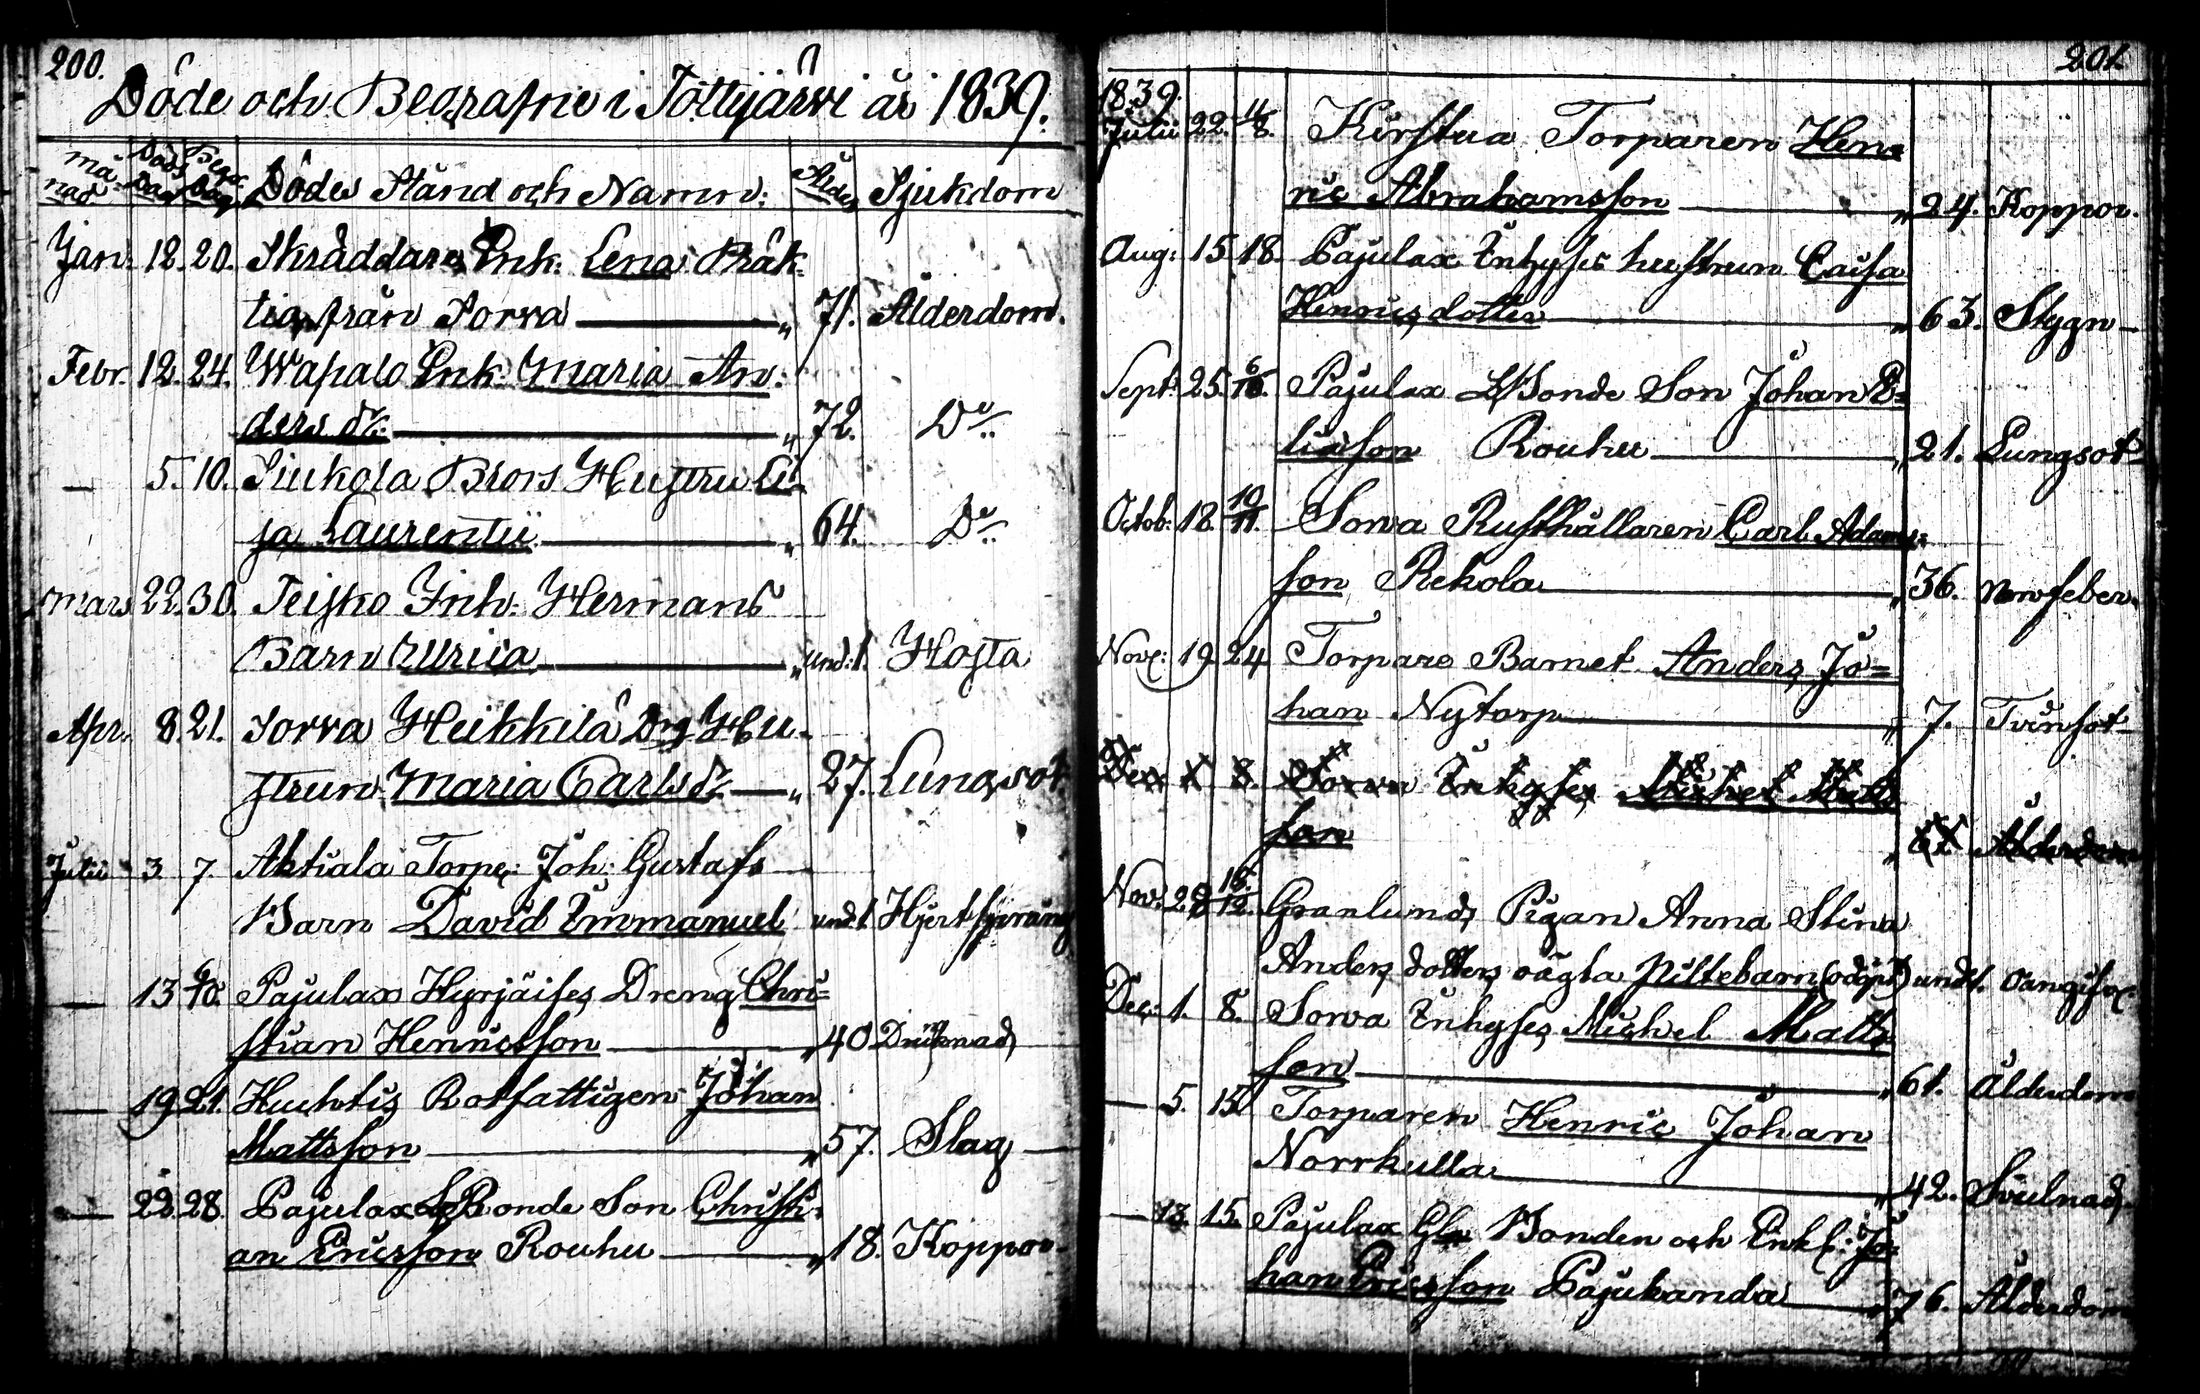 200.
Döde och Begrafne i Tottijärvi år 1839.
Må- Döds Begr.
nad Dag Dag Dödes Stånd och Namn: Ålder Sjukdom
Jan: 12. 20. Skräddare Enk: Lena Präk-
tig från Sorva „ 71. Ålderdom.
Febr. 12. 24. Wapalo Enk. Maria An-
ders dr. „ 72. Do
— 5. 10. Siukola Brors Hustru Li-
sa Laurentii „ 64. Do
Mars 22. 30. Teisko Inh: Hermans
Barn Ulrica „ und: 1 Hosta
Apr: 8. 21. Sorva Heikkilä Drg Hu-
strun Maria Carls dr. „ 27. Lungsot
Julii 3 7. Aktiala Torp: Joh: Gustafs
Barn David Emmanuel und 1. Hjertsprång
— 13 6/10. Pajulax Hyrjäises Dreng Chri=
stian Henricsson „ 40 Drunknad
— 19 21. Huhtis Rotfattigen Johan
Mattsson „ 57. Slag
— 22. 28. Pajulax Bonde Son Christi-
an Ericsson Rouhu „ 18. Koppor
201.
1839.
Julii 22. 4/8. Kirstua Torparen Hen=
ric Abrahamsson „ 24. Koppor.
Aug: 15 18. Pajulax Inhyses hustrun Caisa
Henricsdotter „ 63. Stygn
Sept: 25. 6/10. Pajulax Bonde Son Johan E=
liasson Rouhu „ 21. Lungsot
Octob: 18. 10/11. Sorva Rusthållaren Carl Adams=
son Rekola „ 36. Nervfeber.
Nov: 19 24 Torpare Barnet Anders Jo=
han Nytorp „ 7. Tvinsot
Dec 1 8. Sorva Inhyses Michel Matts
son „ 61 Ålderdom
Nov: 28 15/12. Granlunds Pigan Anna Stina
Anders dotters oägta Piltebarn (odöpt) und 1. oangifv.
Dec: 1. 8. Sorva Inhyses Michel Matts
son „ 61. Ålderdom
— 5. 15. Torparen Henric Johan
Norrkulla „ 42. Svulnad.
— 13. 15. Pajulax Gla Bonden och Enkl: Jo=
han Ericsson Pajukanda „ 76. Ålderdom